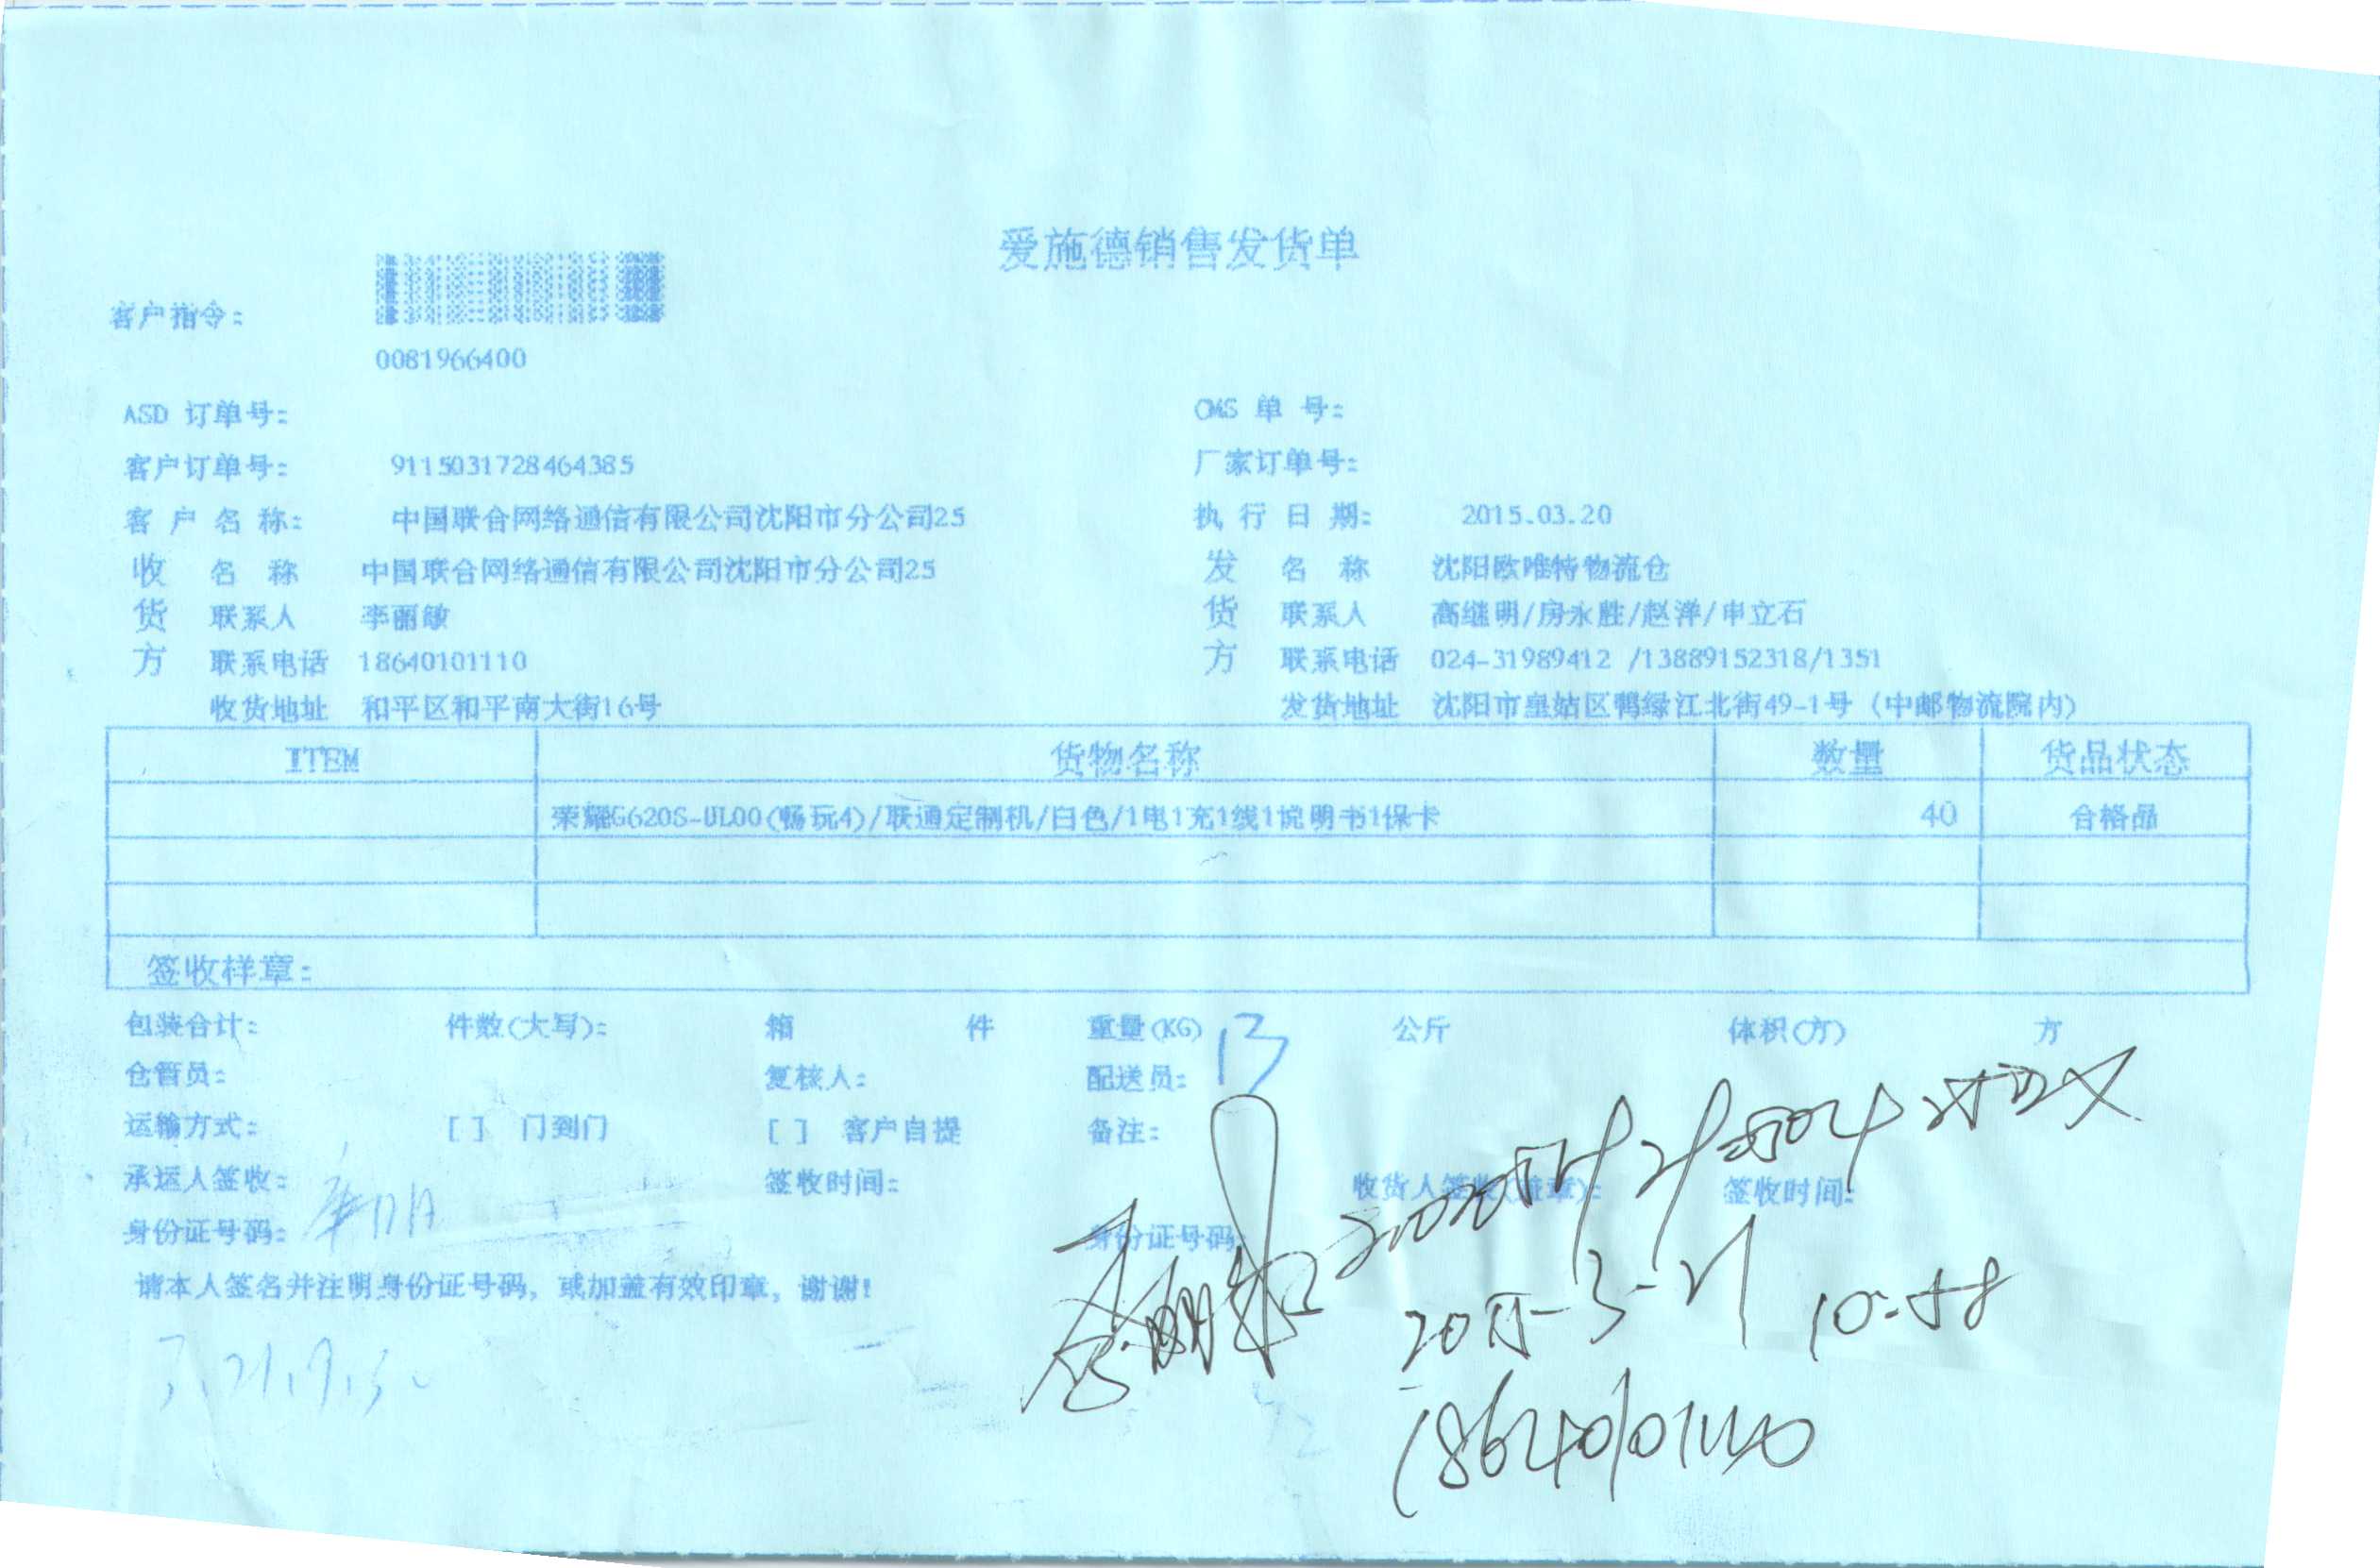 爱施德销售发货单
客户指令：
0081966400
ASD 订单号： OMS 单 号：
客户订单号： 9115031728464385 厂家订单号：
客 户 名 称： 中国联合网络通信有限公司沈阳市分公司25 执 行 日 期： 2015.03.20
收 名 称 中国联合网络通信有限公司沈阳市分公司25 发 名 称 沈阳欧唯特物流仓
货 联系人 李丽敏 货 联系人 高继明/房永胜/赵洋/申立石
方 联系电话 18640101110 方 联系电话 024-31989412 /13889152318/1351
收货地址 和平区和平南大街16号 发货地址 沈阳市皇姑区鸭绿江北街49-1号（中邮物流院内）
ITEM 货物名称 数量 货品状态
荣耀G620S-UL00(畅玩4)/联通定制机/白色/1电1充1线1说明书1保卡 40 合格品
签收样章：
包装合计： 件数(大写)： 箱 件 重量(KG) 13 公斤 体积(方) 方
仓管员： 复核人： 配送员：
运输方式： [ ] 门到门 [ ] 客户自提 备注：
承运人签收： 签收时间： 收货人签收(盖章)： 签收时间：
身份证号码： 身份证号码：
请本人签名并注明身份证号码，或加盖有效印章，谢谢！
李丽敏
2015-3-21 10:58
18640101110